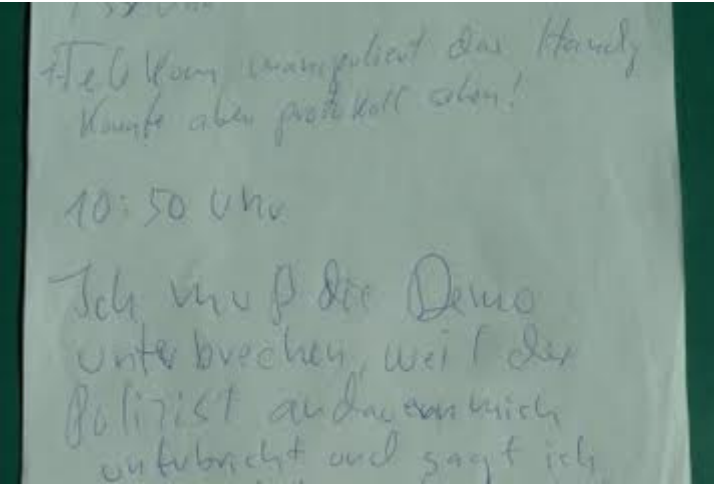 Uhr
Telekom manipuliert das Handy
Konnte aber protokoll sehen!
10:50 Uhr
Ich muß die Demo
unterbrechen, weil der
Polizist andauernd mich
unterbricht und sagt ich